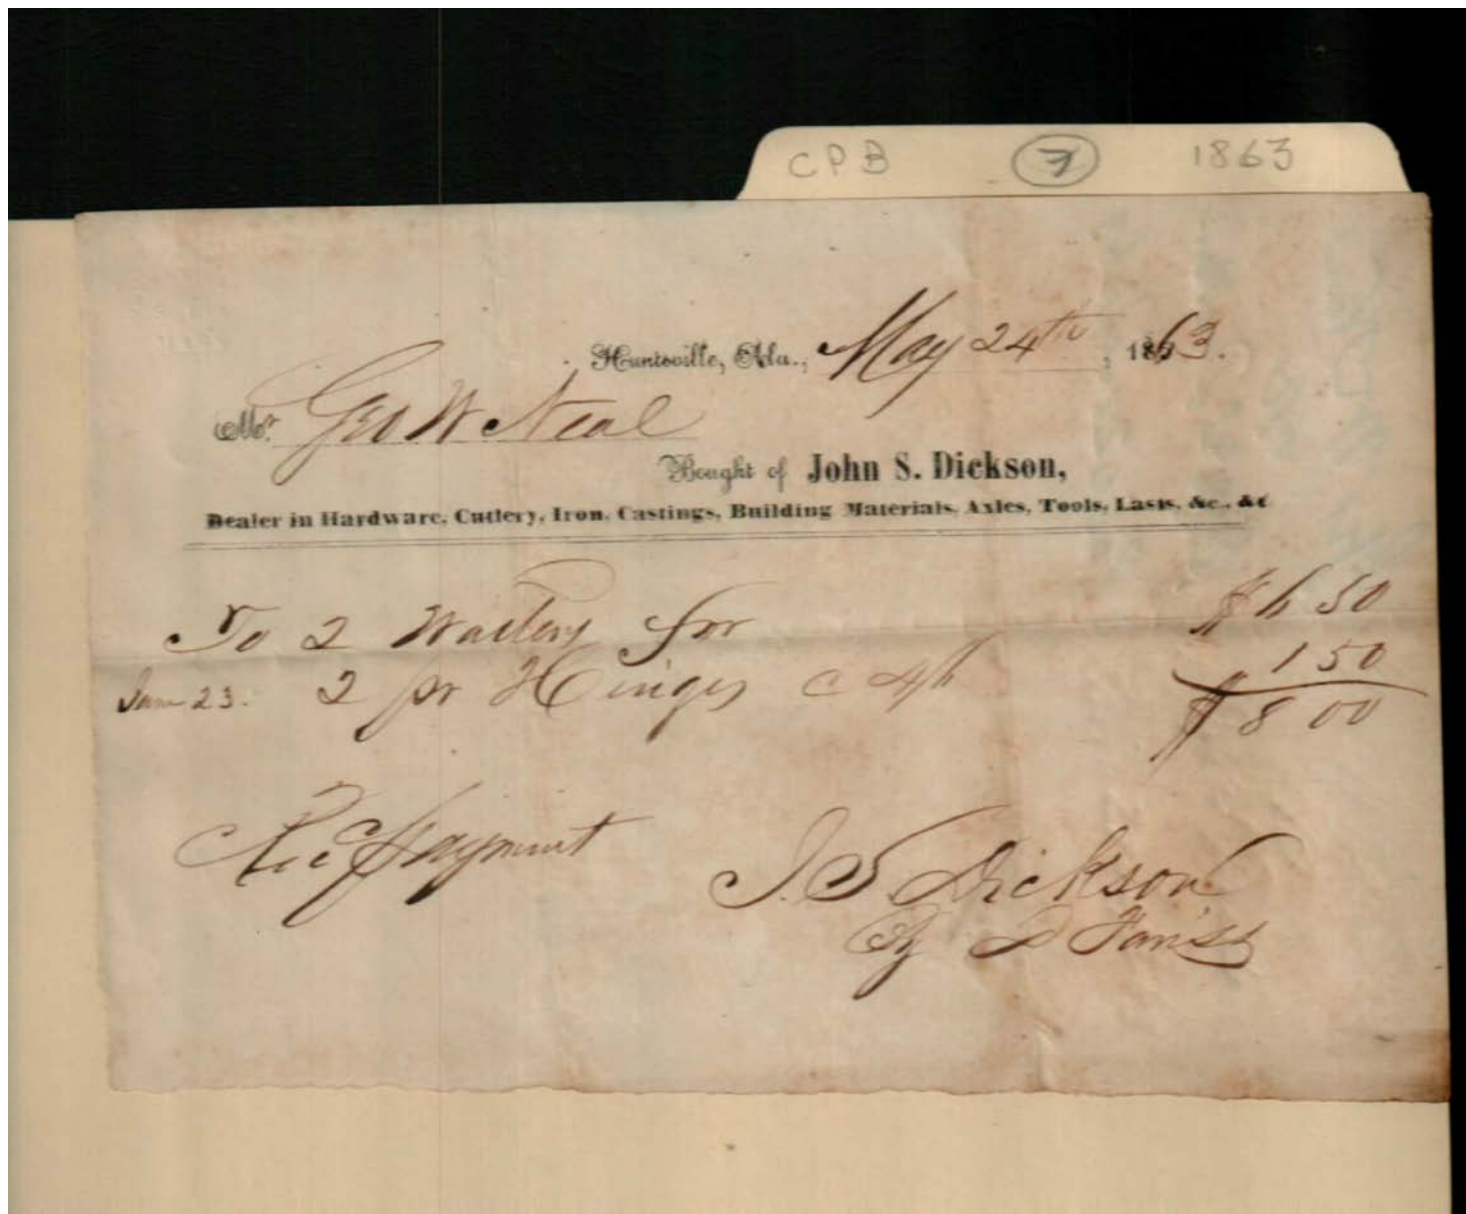 CPB 7 1863
Huntsville, Ala., May 24th, 1863.
Mr. Geo W Neal
Bought of John S. Dickson,
Dealer in Hardware, Cutlery, Iron, Castings, Building Materials, Axles, Tools, Lasts, &c., &c
To 2 Waiters for $6 50
June 23. 2 pr Hinges 1 50
$8 00
Rec Payment
J. S. Dickson
By D